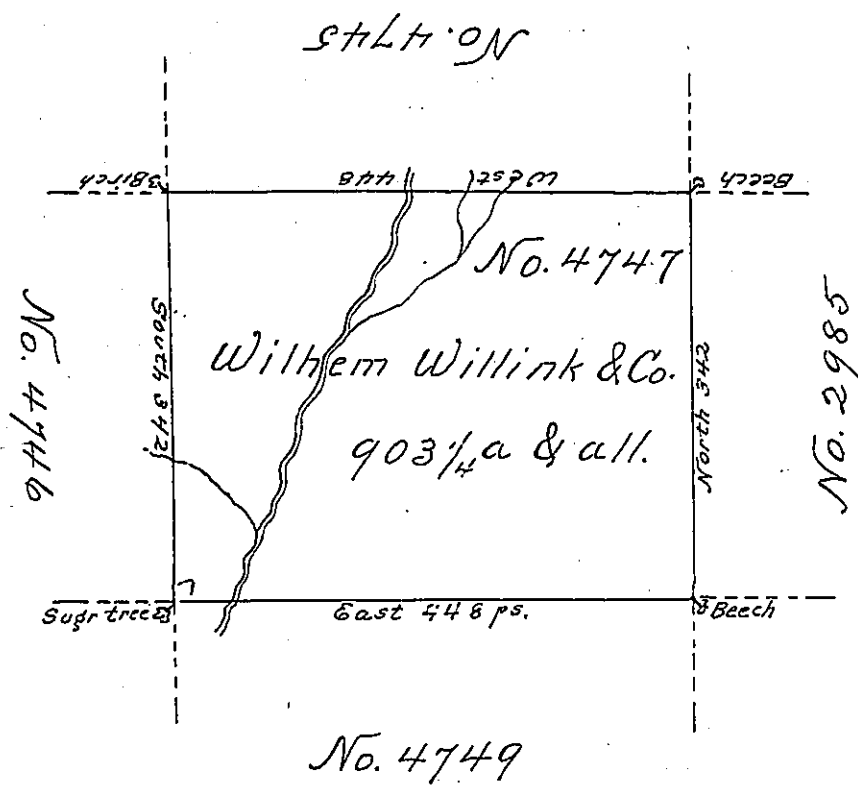 No. 4745
Birch
448
West
Beech
No. 4747
South 342
Wilhem Willink & Co.
903 1/4 a & all.
North 342
No. 4746
No. 2985
Sugr tree
East 448 ps.
Beech
No. 4749